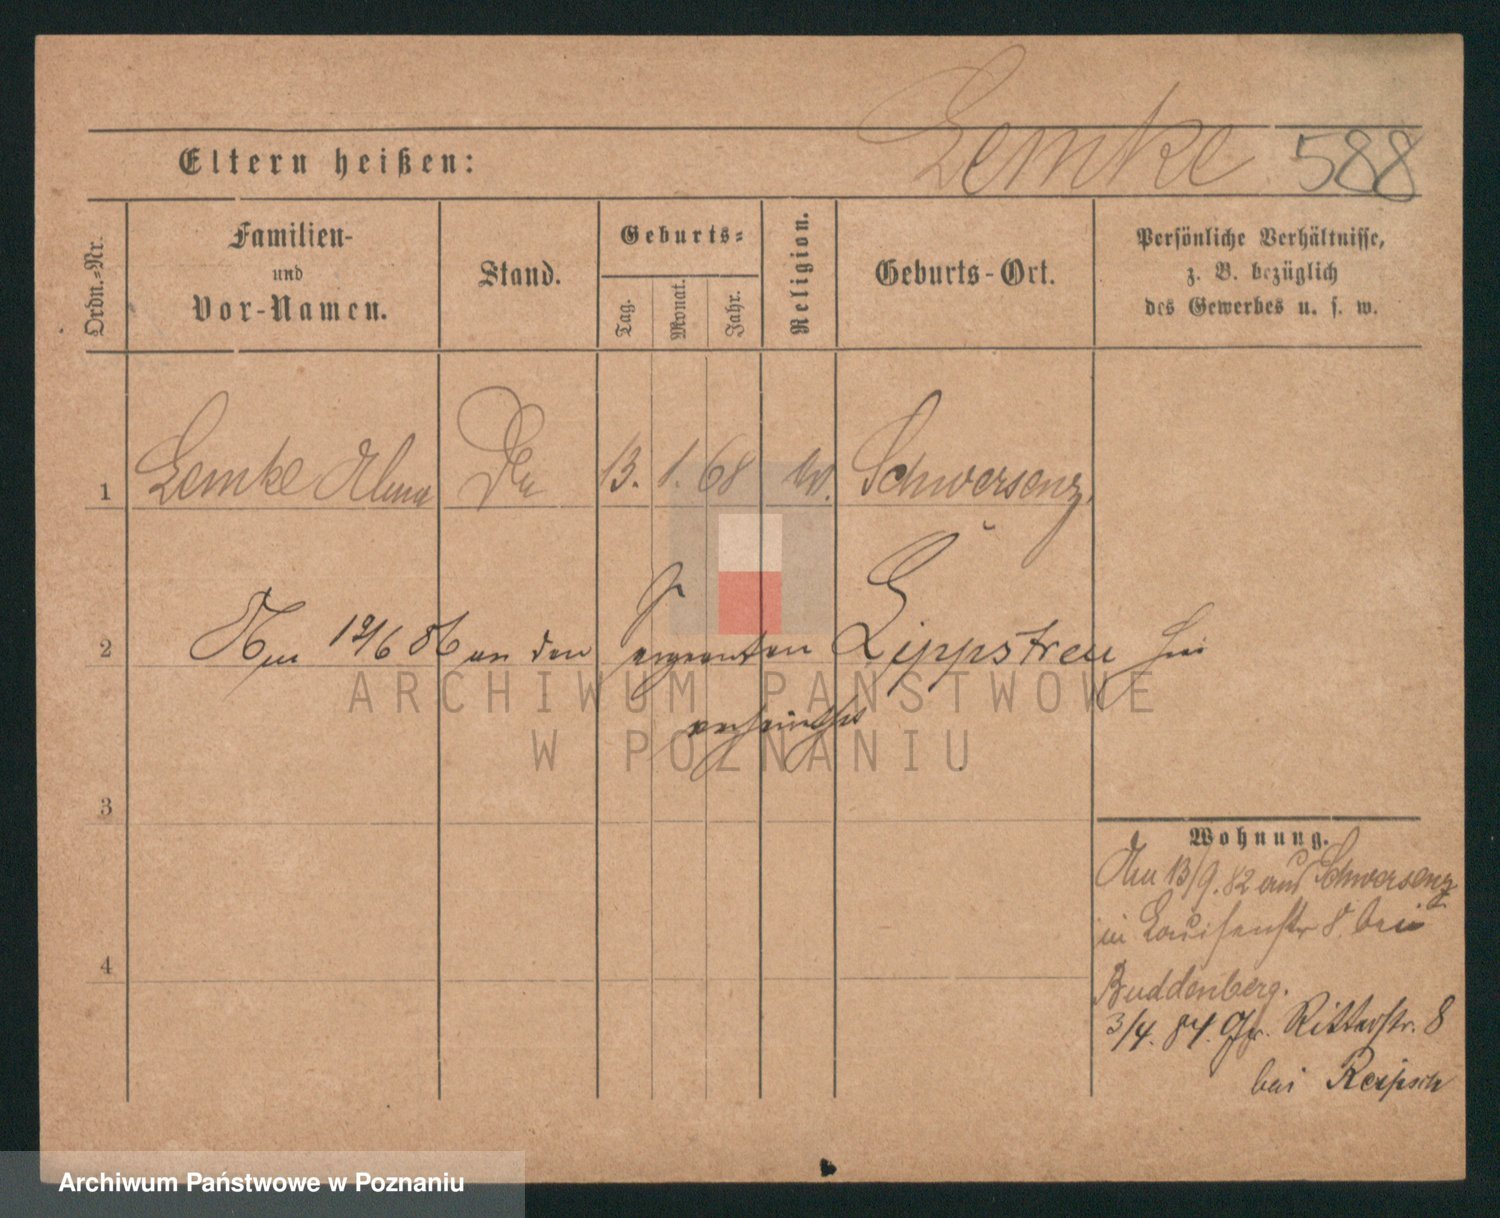 Lemke 588
Eltern heißen:
Ordn.-Nr.
Familien-
und
Vor-Namen.
Stand.
Geburts-
Tag.
Monat.
Jahr.
Religion.
Geburts-Ort.
Persönliche Verhältnisse,
z. B. bezüglich
des Gewerbes u. s. w.
1 Lemke Alma 13. 1. 68 Schwersenz.
2 Am 12/6 86 an den Sergeanten Lippstreu hier
verheirathet
3
4
Wohnung.
Am 13/9. 82 aus Schwersenz
in Louisenstr 8. bei
Buddenberg.
3/4. 84. Gr. Ritterstr. 8
bei
ARCHIWUM PAŃSTWOWE
W POZNANIU
Archiwum Państwowe w Poznaniu